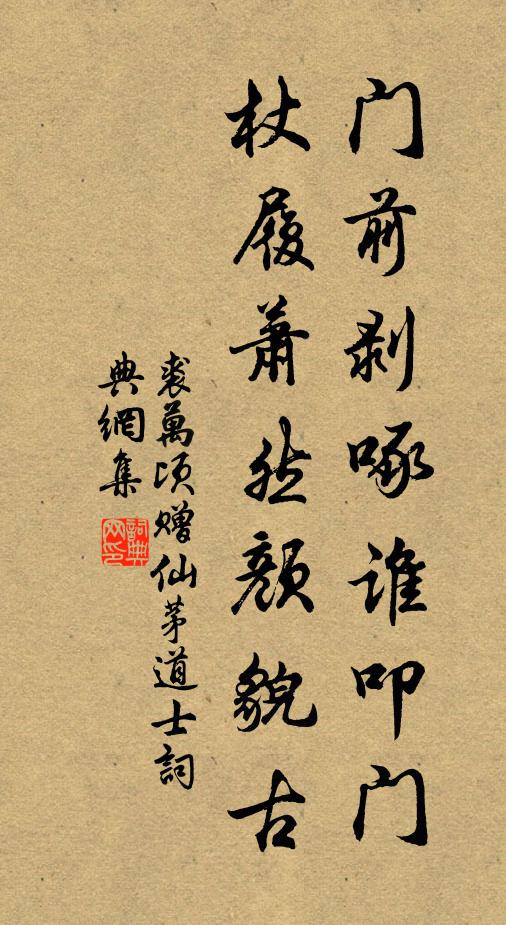 门前剥啄谁叩门
杖履萧然颜貌古
裘萬顷赠仙茅道士詞
典網集
詞典网印